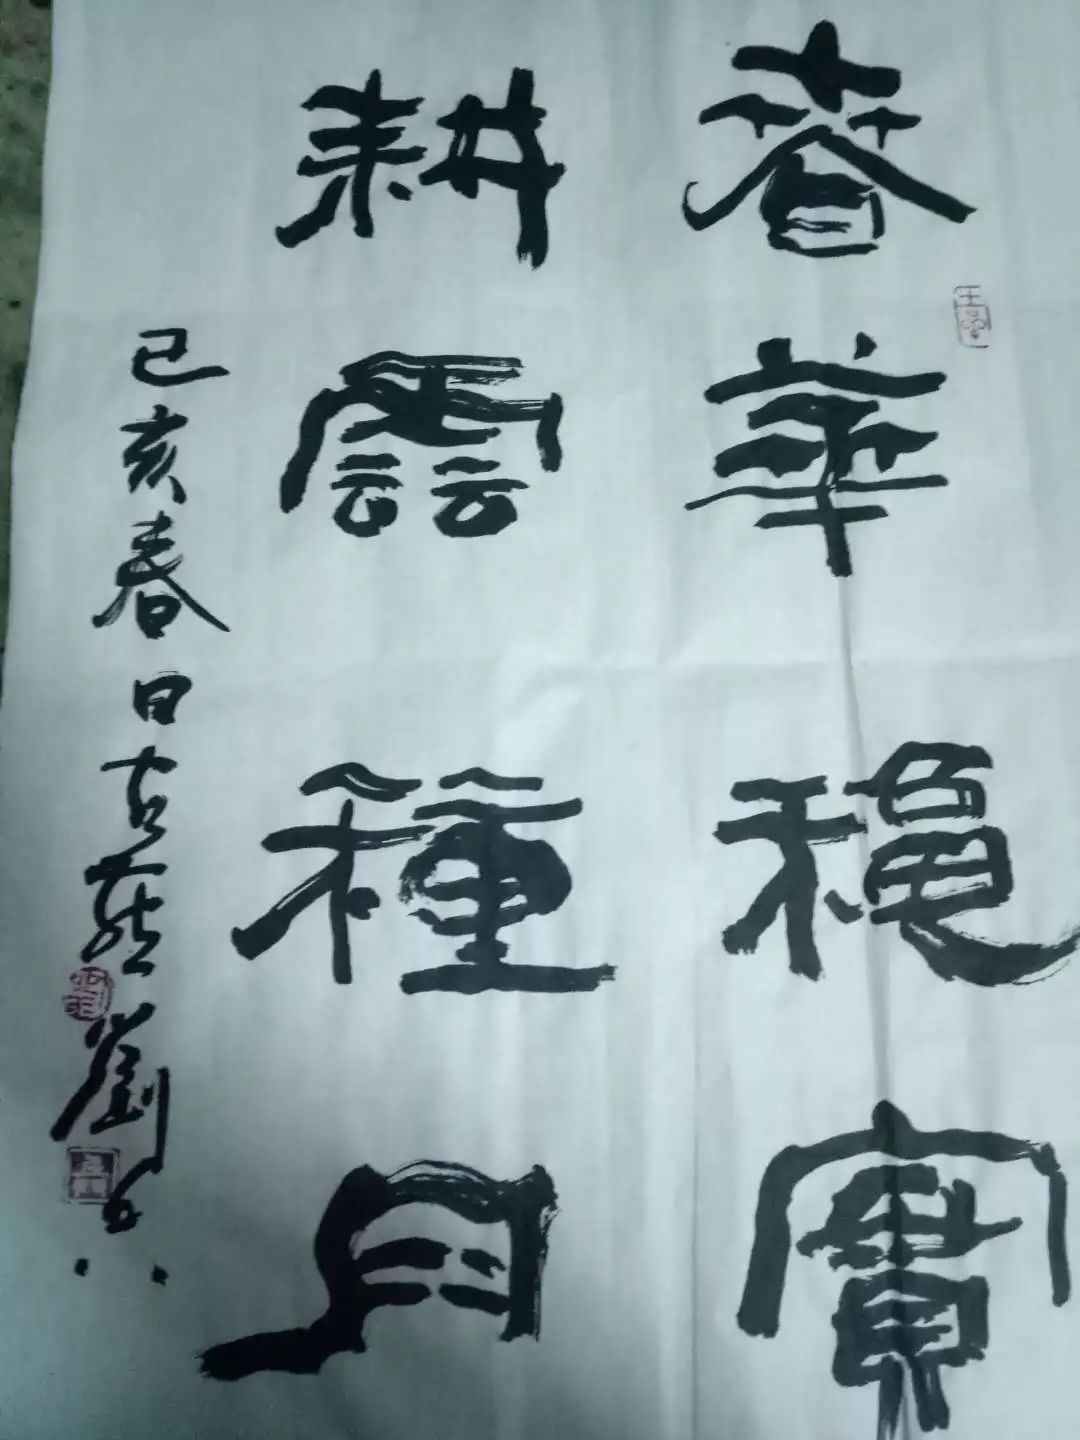 春華穐實
耕雲種月
己亥春日古燕劉